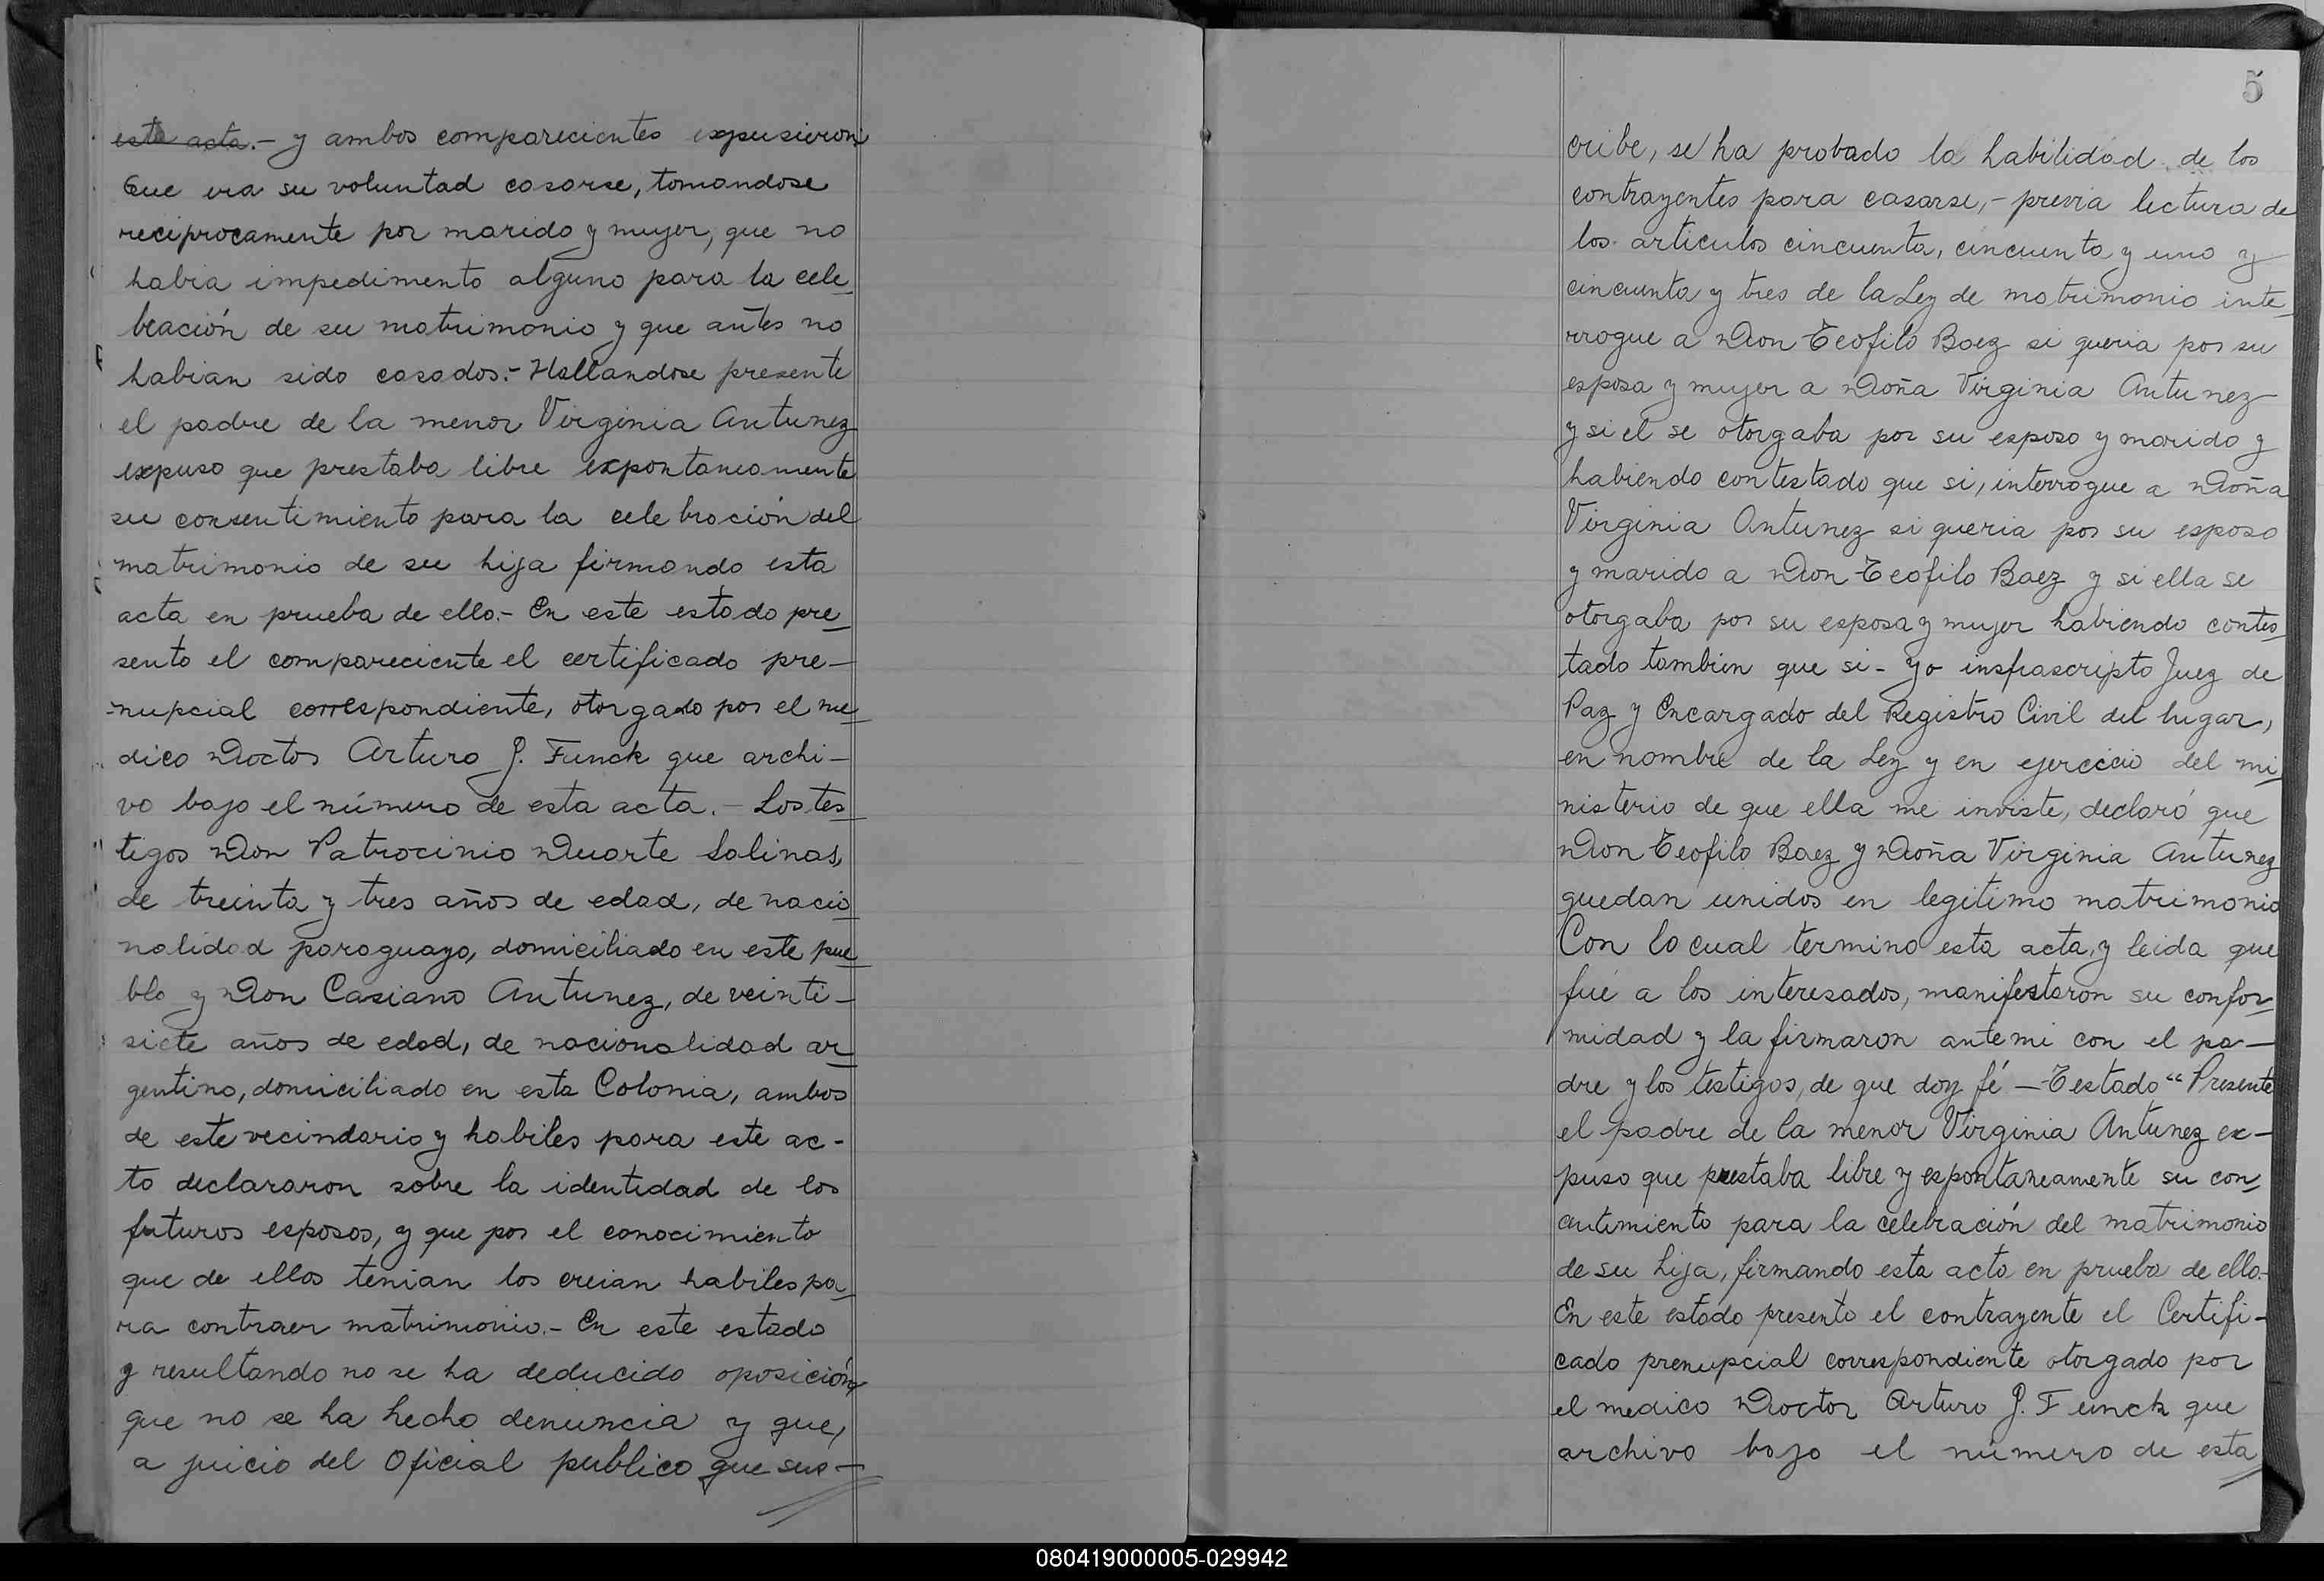 este acta.- y ambos comparecientes expusieron
Que era su voluntad casarse, tomandose
reciprocamente por marido y mujer, que no
habia impedimento alguno para la cele
bración de su matrimonio y que antes no
habian sido casados.- Hallandose presente
el padre de la menor Virginia Antunez
expuso que prestaba libre expontaneamente
su consentimiento para la celebración del
matrimonio de su hija firmando esta
acta en prueba de ello.- En este estado pre
sento el compareciente el certificado pre-
nupcial correspondiente, otorgado por el me
dico Doctor Arturo J. Funck que archi-
vo bajo el número de esta acta.- Los tes
tigos Don Patrocinio Duarte Salinas,
de treinta y tres años de edad, de nacio
nalidad paraguayo, domiciliado en este pue
blo y Don Casiano Antunez, de veinti-
siete años de edad, de nacionalidad ar
gentino, domiciliado en esta Colonia, ambos
de este vecindario y habiles para este ac-
to declararon sobre la identidad de los
futuros esposos, y que por el conocimiento
que de ellos tenian los creian habiles pa
ra contraer matrimonio.- En este estado
y resultando no se ha deducido oposición,
que no se ha hecho denuncia y que,
a juicio del Oficial publico que sus-
5
cribe, se ha probado la habilidad de los
contrayentes para casarse,- previa lectura de
los articulos cincuenta, cincuenta y uno y
cincuenta y tres de la Ley de matrimonio inte
rrogue a Don Teofilo Baez si queria por su
esposa y mujer a Doña Virginia Antunez
y si el se otorgaba por su esposo y marido y
habiendo contestado que si, interrogue a Doña
Virginia Antunez si queria por su esposo
y marido a Don Teofilo Baez y si ella se
otorgaba por su esposa y mujer habiendo contes
tado tambien que si- yo insfrascripto Juez de
Paz y Encargado del Registro Civil del lugar,
en nombre de la Ley y en ejercicio del mi
nisterio de que ella me inviste, declaró que
Don Teofilo Baez y Doña Virginia Antunez
quedan unidos en legitimo matrimonio
Con lo cual termino esta acta, y leida que
fué a los interesados, manifestaron su confor
midad y la firmaron ante mi con el pa-
dre y los testigos, de que doy fé - Testado "Presente
el padre de la menor Virginia Antunez ex-
puso que prestaba libre y espontaneamente su con
centimiento para la celebración del matrimonio
de su hija, firmando esta acta en prueba de ello.-
En este estado presento el contrayente el Certifi-
cado prenupcial correspondiente otorgado por
el medico Doctor Arturo J. Funck que
archivo bajo el número de esta
080419000005-029942